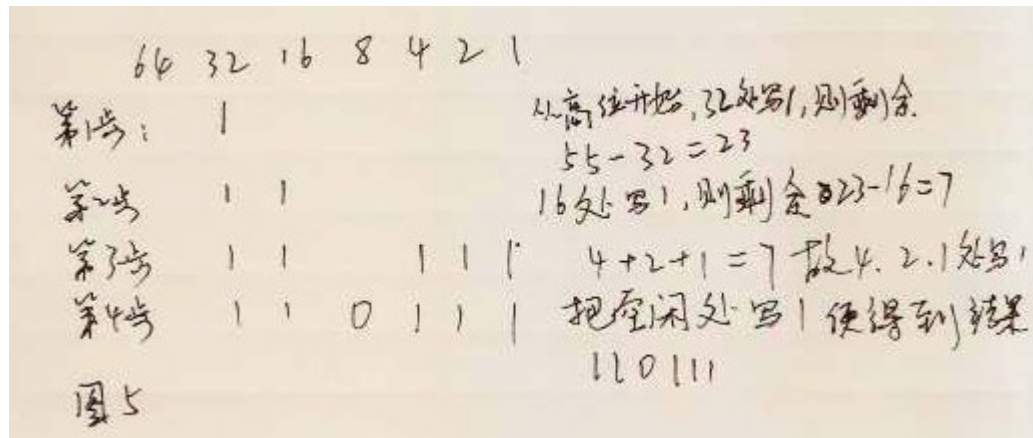 64 32 16 8 4 2 1
第1步: 1 从高位开始,32处写1,则剩余
55-32=23
第2步 1 1 16处写1,则剩余23-16=7
第3步 1 1 1 1 1 4+2+1=7 故4.2.1处写1
第4步 1 1 0 1 1 1 把空闲处写1便得到结果
110111
图5